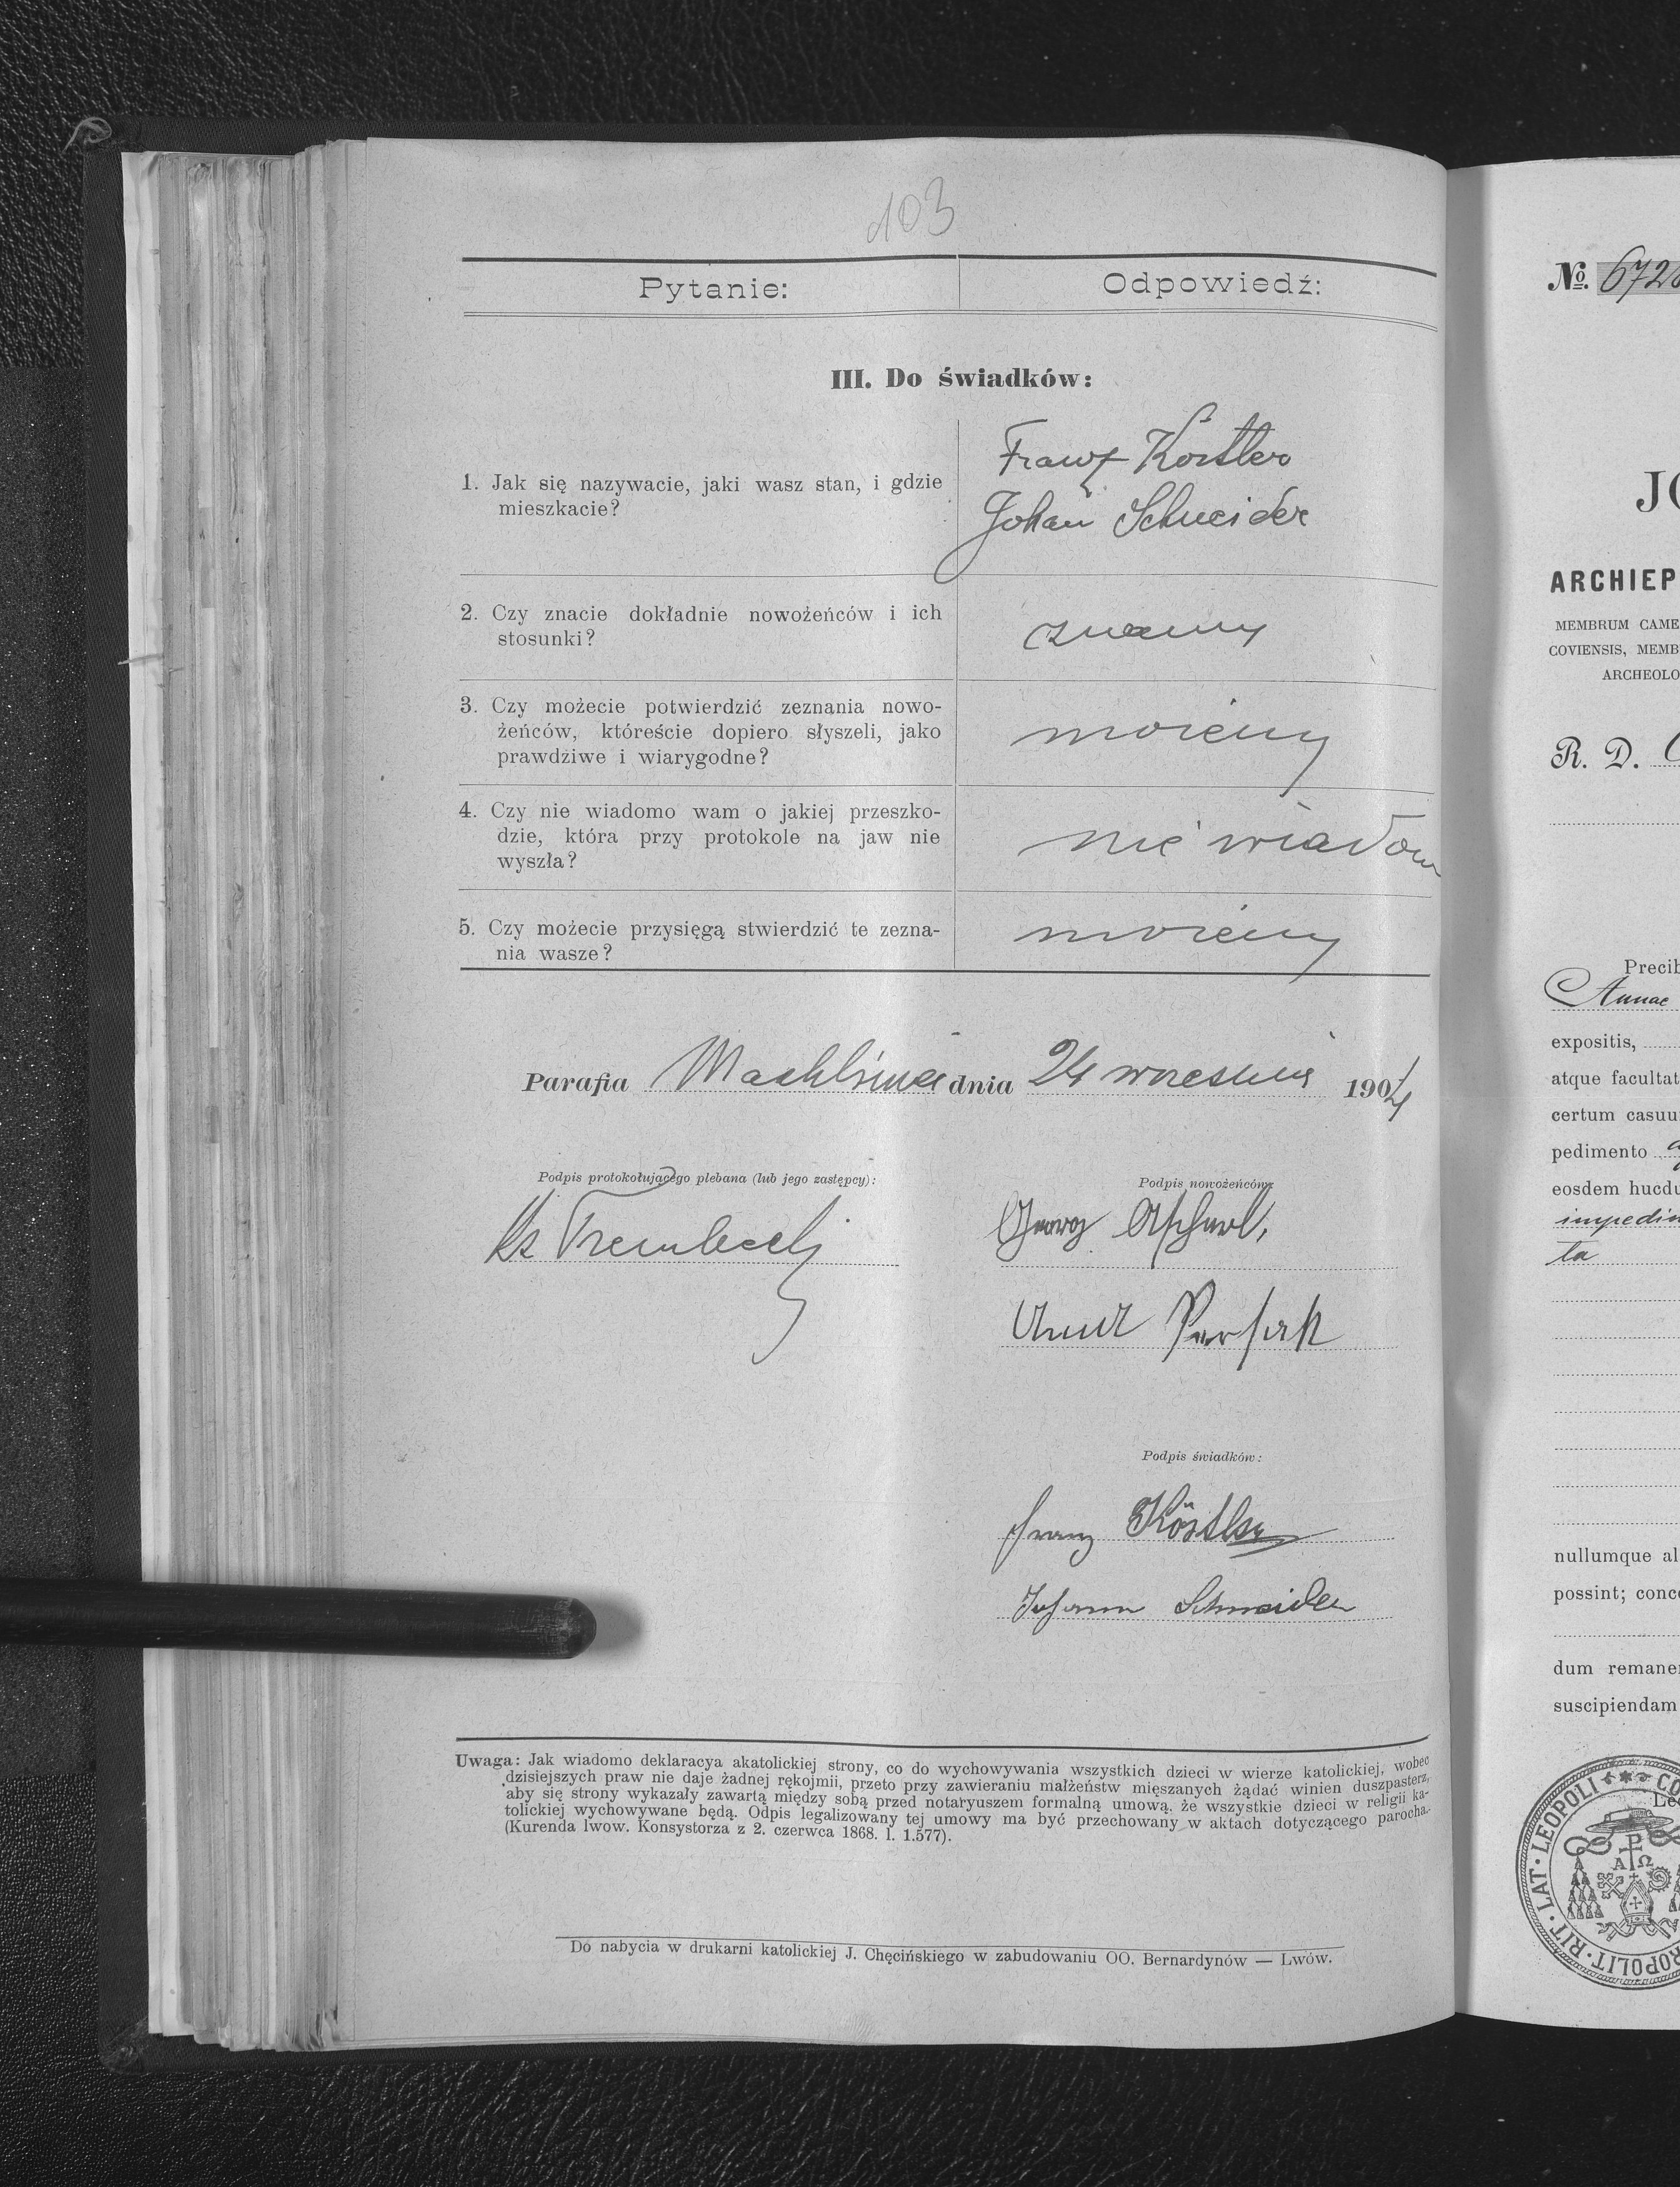 103
Pytanie: Odpowiedź:
III. Do świadków:
1. Jak się nazywacie, jaki wasz stan, i gdzie
mieszkacie?
Franz Köstler
Johan Schneider
2. Czy znacie dokładnie nowożeńców i ich
stosunki?
znamy
3. Czy możecie potwierdzić zeznania nowo-
żeńców, któreście dopiero słyszeli, jako
prawdziwe i wiarygodne?
możemy
4. Czy nie wiadomo wam o jakiej przeszko-
dzie, która przy protokole na jaw nie
wyszła?
nie wiadom
5. Czy możecie przysięgą stwierdzić te zezna-
nia wasze?
możemy
Parafia Machliniec dnia 24 września 1904
Podpis protokołującego plebana (lub jego zastępcy):
Ks Trembecki
Podpis nowożeńców:
Georg
Anna
Podpis świadków:
Franz Köstler
Johann Schneider
Uwaga: Jak wiadomo deklaracya akatolickiej strony, co do wychowywania wszystkich dzieci w wierze katolickiej, wobec
dzisiejszych praw nie daje żadnej rękojmii, przeto przy zawieraniu małżeństw mięszanych żądać winien duszpasterz,
aby się strony wykazały zawartą między sobą przed notaryuszem formalną umową, że wszystkie dzieci w religii ka-
tolickiej wychowywane będą. Odpis legalizowany tej umowy ma być przechowany w aktach dotyczącego parocha.
(Kurenda lwow. Konsystorza z 2. czerwca 1868. l. 1.577).
Do nabycia w drukarni katolickiej J. Chęcińskiego w zabudowaniu OO. Bernardynów — Lwów.
№. 672
JO
ARCHIEP
MEMBRUM CAME
COVIENSIS, MEMB
ARCHEOLO
R. D.
Precib
Annae
expositis,
atque facultat
certum casuu
pedimento
eosdem hucdu
impedim
ta
nullumque al
possint; conce
dum remane
suscipiendam
Leo
RIT · LAT · LEOPOLI